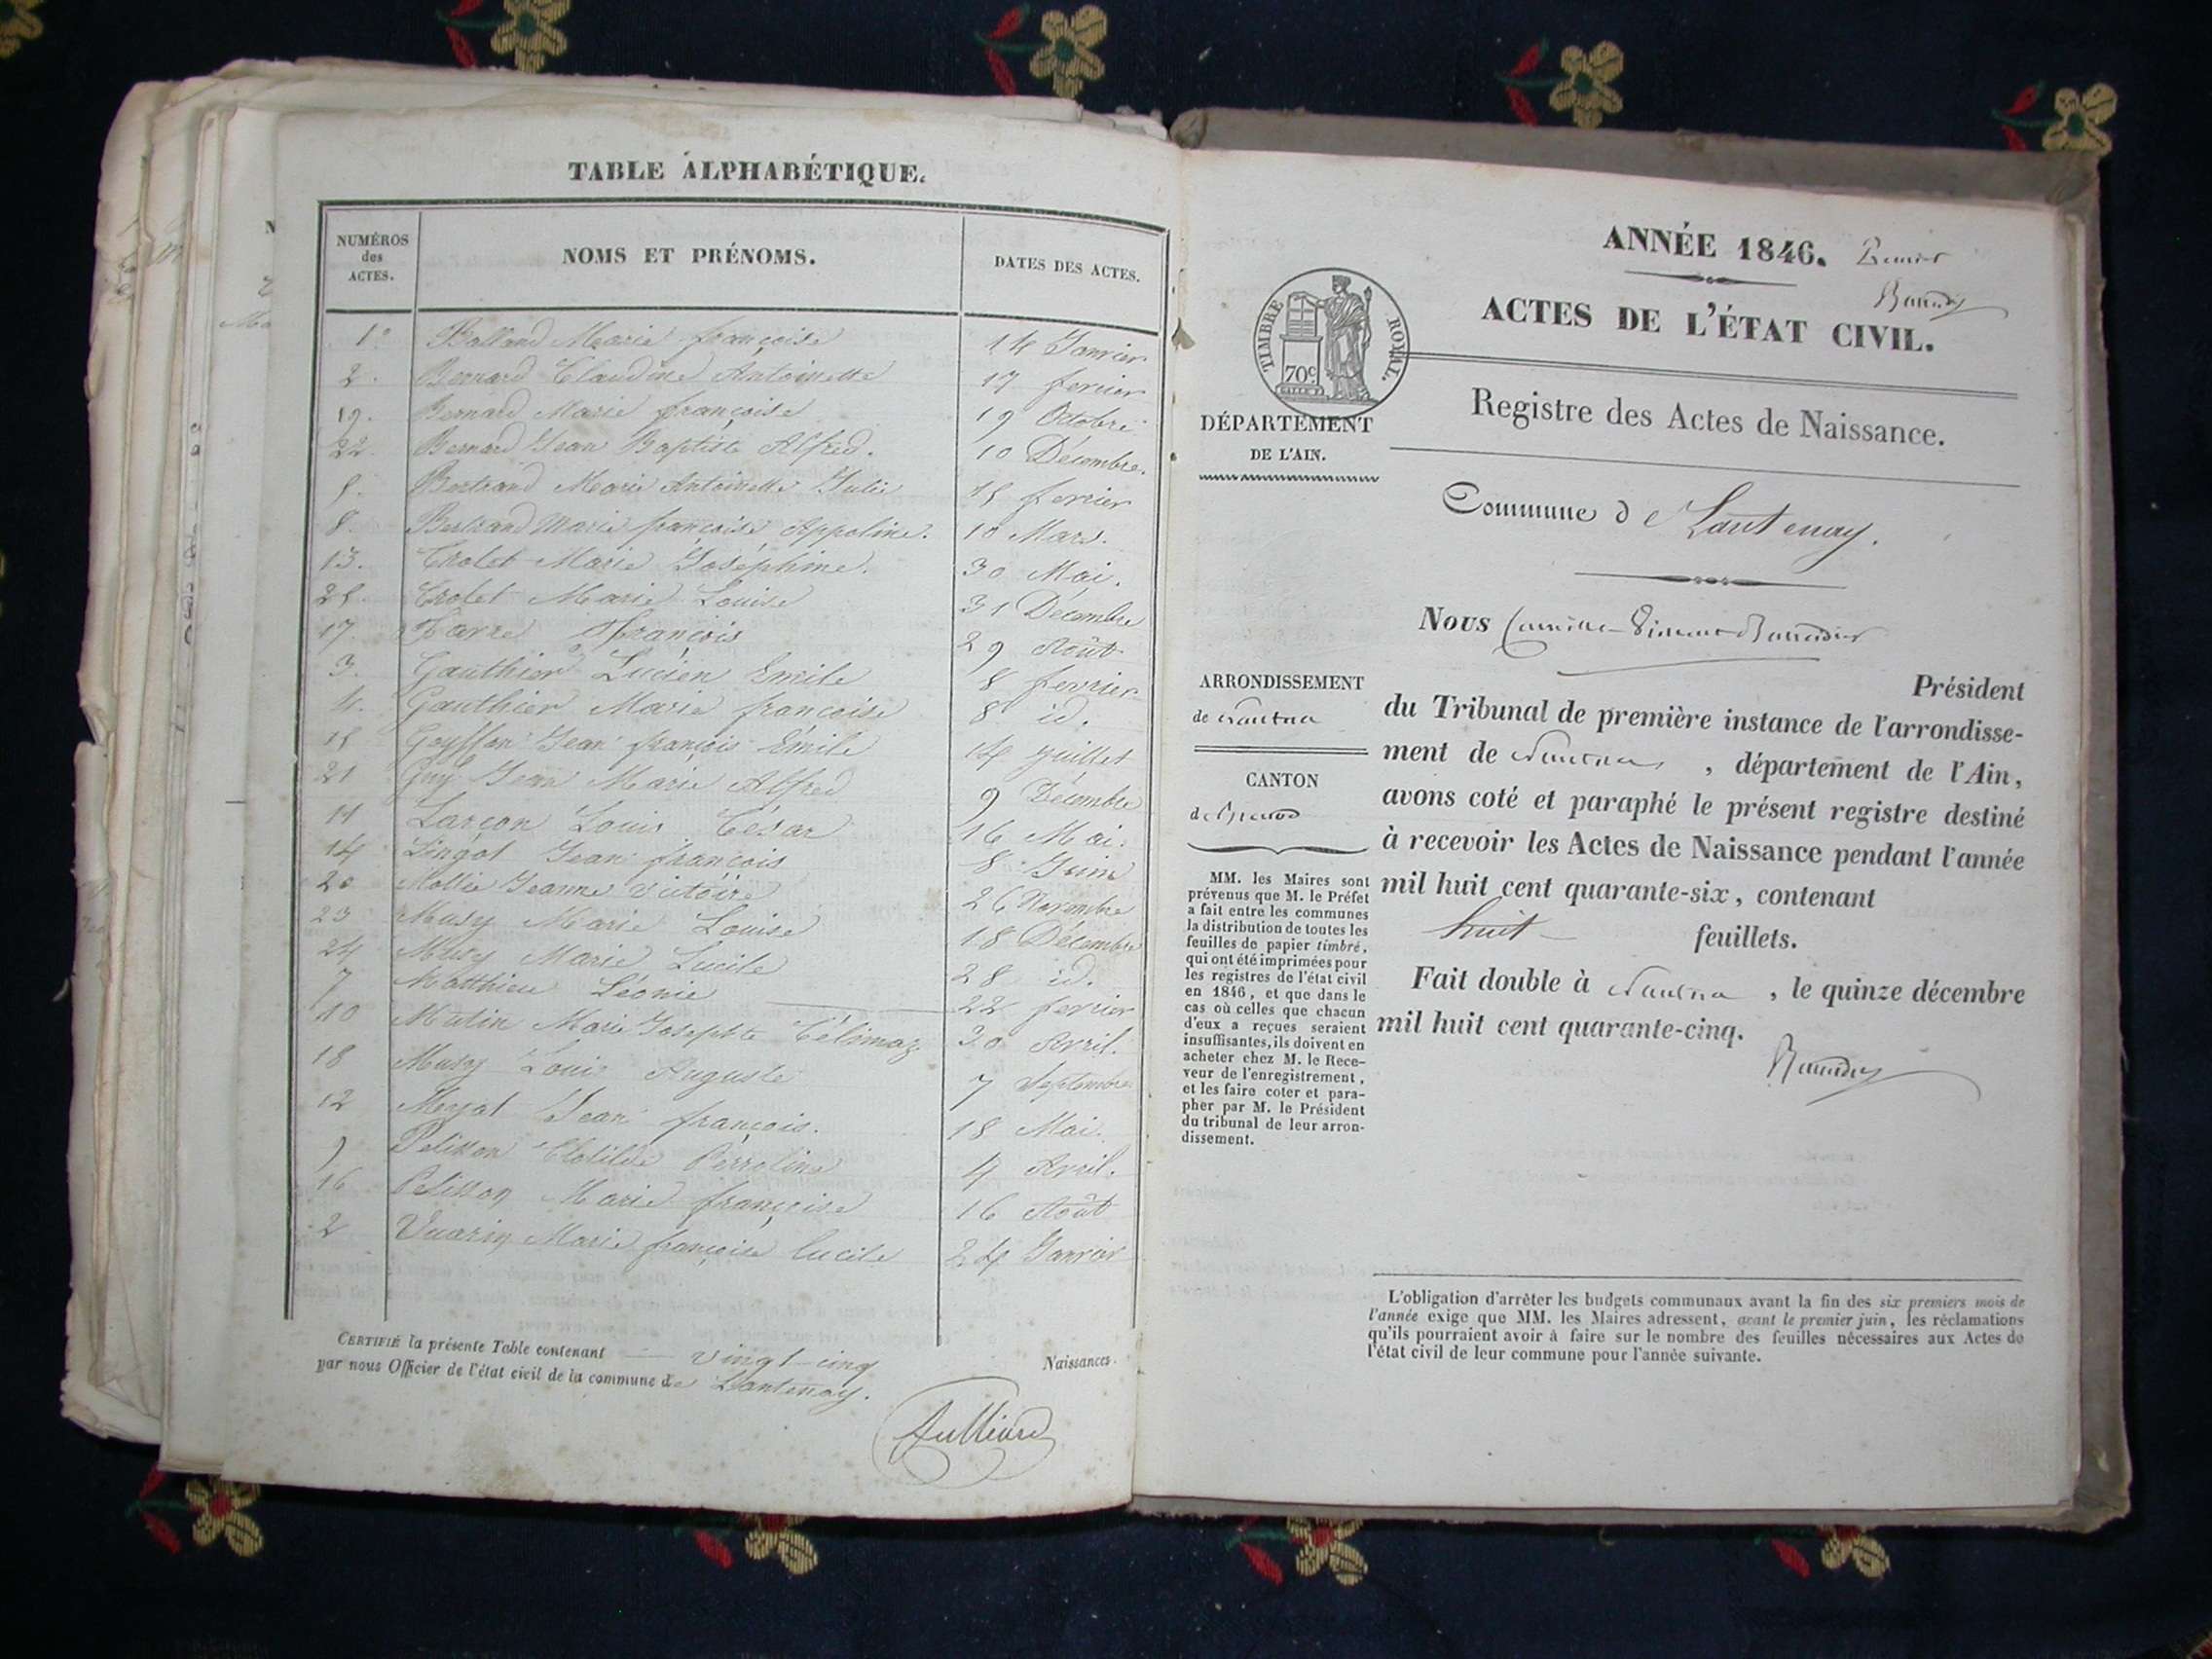 TABLE ALPHABÉTIQUE.
NUMÉROS des ACTES.
NOMS ET PRÉNOMS.
DATES DES ACTES.
1º Balland Marie françoise 14 Janvier
2. Bernard Claudine Antoinette 17 fevrier
19. Bernard Marie françoise 19 Octobre
22. Bernard Jean Baptiste Alfred. 10 Décembre.
5. Bertrand Marie Antoinette Julie 15 fevrier
8. Bertrand Marie françoise Appoline. 10 Mars.
13. Crolet Marie Joséphine. 30 Mai.
25. Crolet Marie Louise 31 Décembre
17. Favre François 29 Août
3. Gauthier Lucien Emile 8 fevrier
4. Gauthier Marie françoise 8 id.
15 Goyffon Jean françois Emile 14 Juillet
21 Guy Jean Marie Alfred 9 Décembre
11 Larçon Louis César 16 Mai.
14 Lingot Jean françois 8 Juin
20 Mollie Jeanne Victoire 26 Novembre
23 Musy Marie Louise 18 Décembre
24 Musy Marie Lucile 28 id.
7 Matthieu Léonie 22 fevrier
10 Mutin Marie Josephte 20 Avril.
18 Musy Louis Auguste 7 Septembre
12 Meyat Jean françois. 18 Mai.
9 Pelisson Clotilde Perroline 4 Avril.
16 Pelisson Marie françoise 16 Août
2 Vuarin Marie françoise Lucile 24 Janvier
CERTIFIÉ la présente Table contenant vingt-cinq Naissances.
par nous Officier de l'état civil de la commune de Lantenay.
Julliard
ANNÉE 1846. Premier
ACTES DE L'ÉTAT CIVIL.
TIMBRE ROYAL.
70c
DÉPARTEMENT
DE L'AIN.
Registre des Actes de Naissance.
Commune de Lantenay.
Nous
ARRONDISSEMENT
de Nantua
CANTON
de Brenod
MM. les Maires sont
prévenus que M. le Préfet
a fait entre les communes
la distribution de toutes les
feuilles de papier timbré,
qui ont été imprimées pour
les registres de l'état civil
en 1846, et que dans le
cas où celles que chacun
d'eux a reçues seraient
insuffisantes, ils doivent en
acheter chez M. le Rece-
veur de l'enregistrement,
et les faire coter et para-
pher par M. le Président
du tribunal de leur arron-
dissement.
Président
du Tribunal de première instance de l'arrondisse-
ment de Nantua, département de l'Ain,
avons coté et paraphé le présent registre destiné
à recevoir les Actes de Naissance pendant l'année
mil huit cent quarante-six, contenant
huit feuillets.
Fait double à Nantua, le quinze décembre
mil huit cent quarante-cinq.
L'obligation d'arrêter les budgets communaux avant la fin des six premiers mois de
l'année exige que MM. les Maires adressent, avant le premier juin, les réclamations
qu'ils pourraient avoir à faire sur le nombre des feuilles nécessaires aux Actes de
l'état civil de leur commune pour l'année suivante.